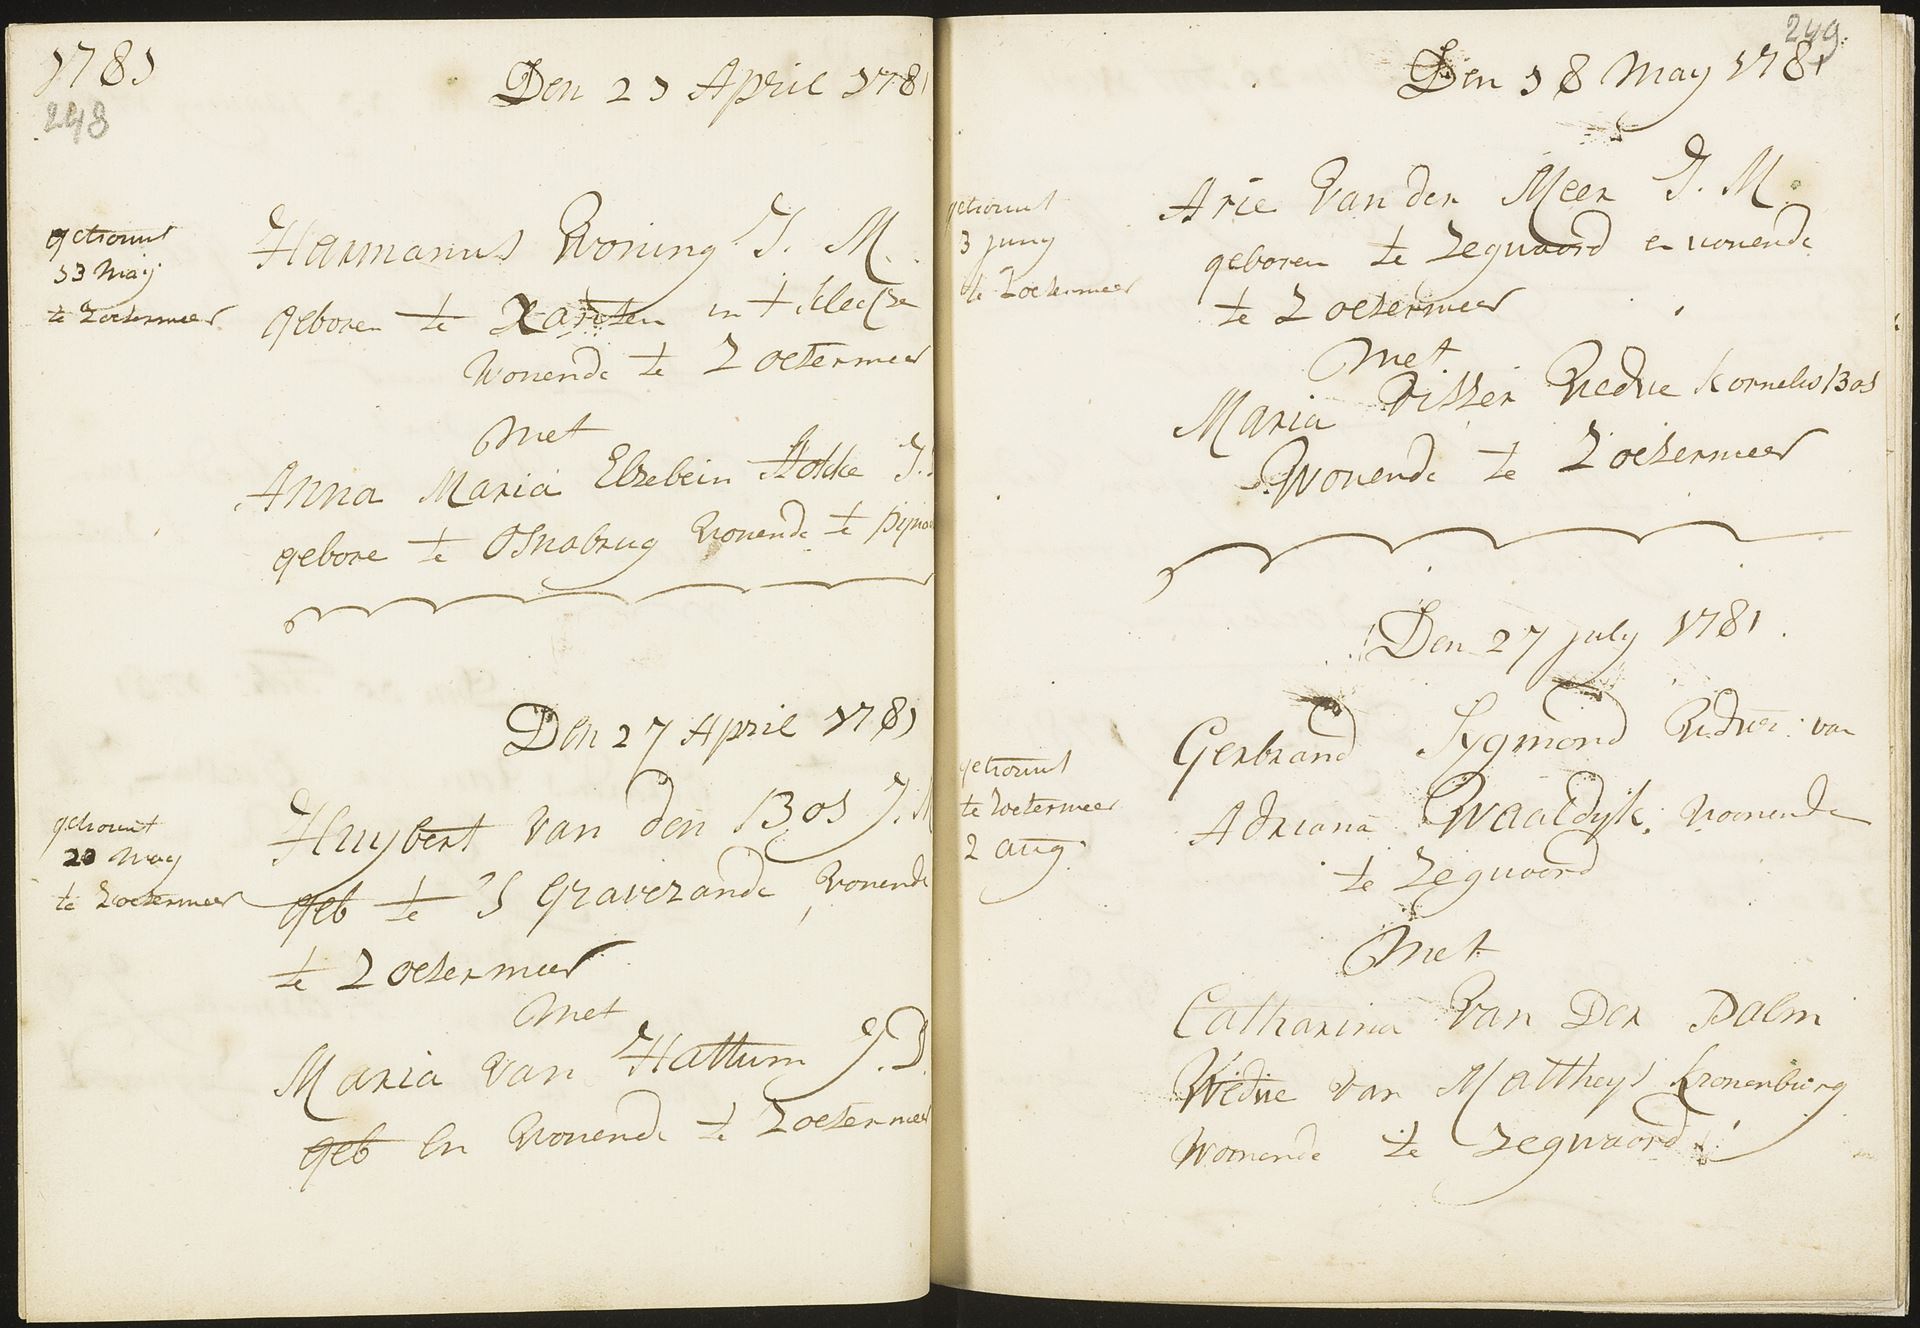 1781
248
Den 21 April 1781
getrouwt
13 Maij
te Zoetermeer
Harmanus Woning J. M.
geboren te Xanten in t Kleefze
Wonende te Zoetermeer
Met
Anna Maria Elzebein Hokke J.
gebore te Osnabrug Wonende te Pijna
Den 27 April 1781
getrouwt
20 May
te Zoetermeer
Huybert van den Bos J. M
geb te 'S Gravezande, Wonende
te Zoetermeer
Met
Maria van Hattum J. D
geb En Wonende te Zoetermeer
249
Den 18 May 1781
getrouwt
3 Juny
te Zoetermeer
Arie Van der Meer J. M.
geboren te Zegwaard en wonende
te Zoetermeer
Met
Maria Visser Wedue Kornelis Bos
Wonende te Zoetermeer
Den 27 July 1781
getrouwt
te Zoetermeer
2 aug
Gerbrand Sygmond Weduer van
Adriana Waaldyk, Woonende
te Zegwaard
Met
Catharina Van Der Palm
Wedue Van Mattheys Kronenburg
Wonende te Zegwaard